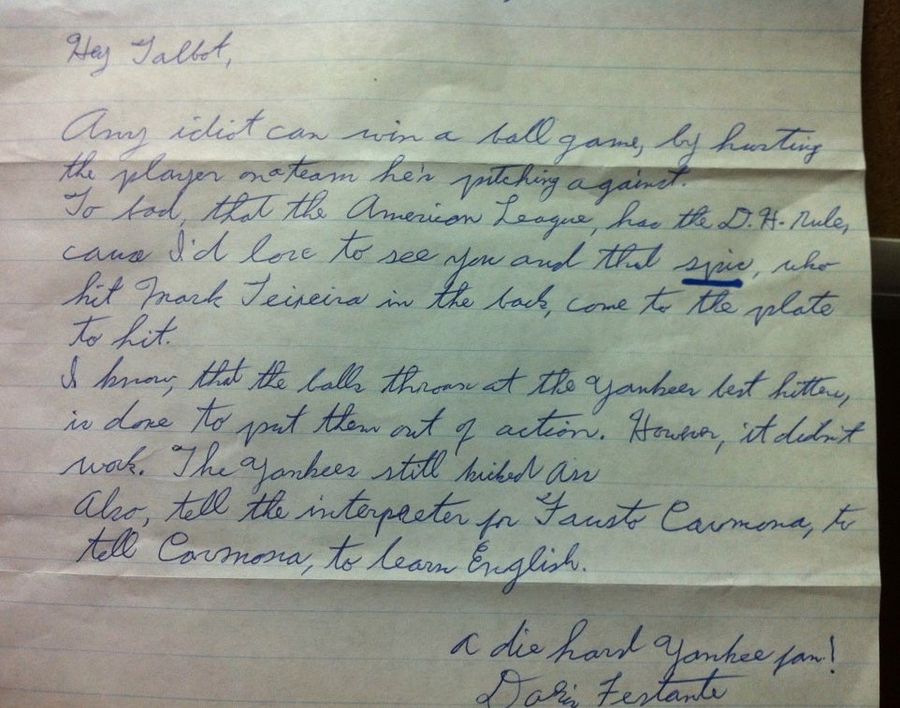 Hey Talbot,
Any idiot can win a ball game, by hurting
the player on a team he's pitching against.
To bad, that the American League, has the D.H-Rule,
cause I'd love to see you and that spic, who
hit Mark Teixeira in the back, come to the plate
to hit.
I know, that the balls thrown at the Yankees best hitters,
is done to put them out of action. However, it didn't
work. The Yankees still kicked Ass
Also, tell the interpreter for Fausto Carmona, to
tell Carmona, to learn English.
A die hard Yankee fan!